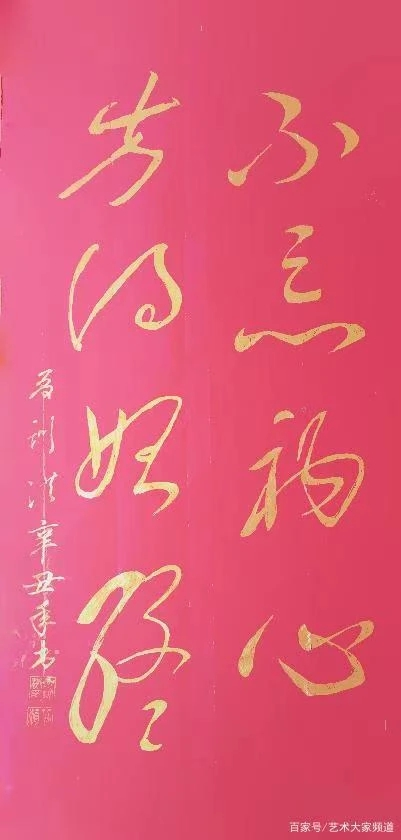 不忘初心
方得始终
训洪辛丑年书
百家号/艺术大家频道